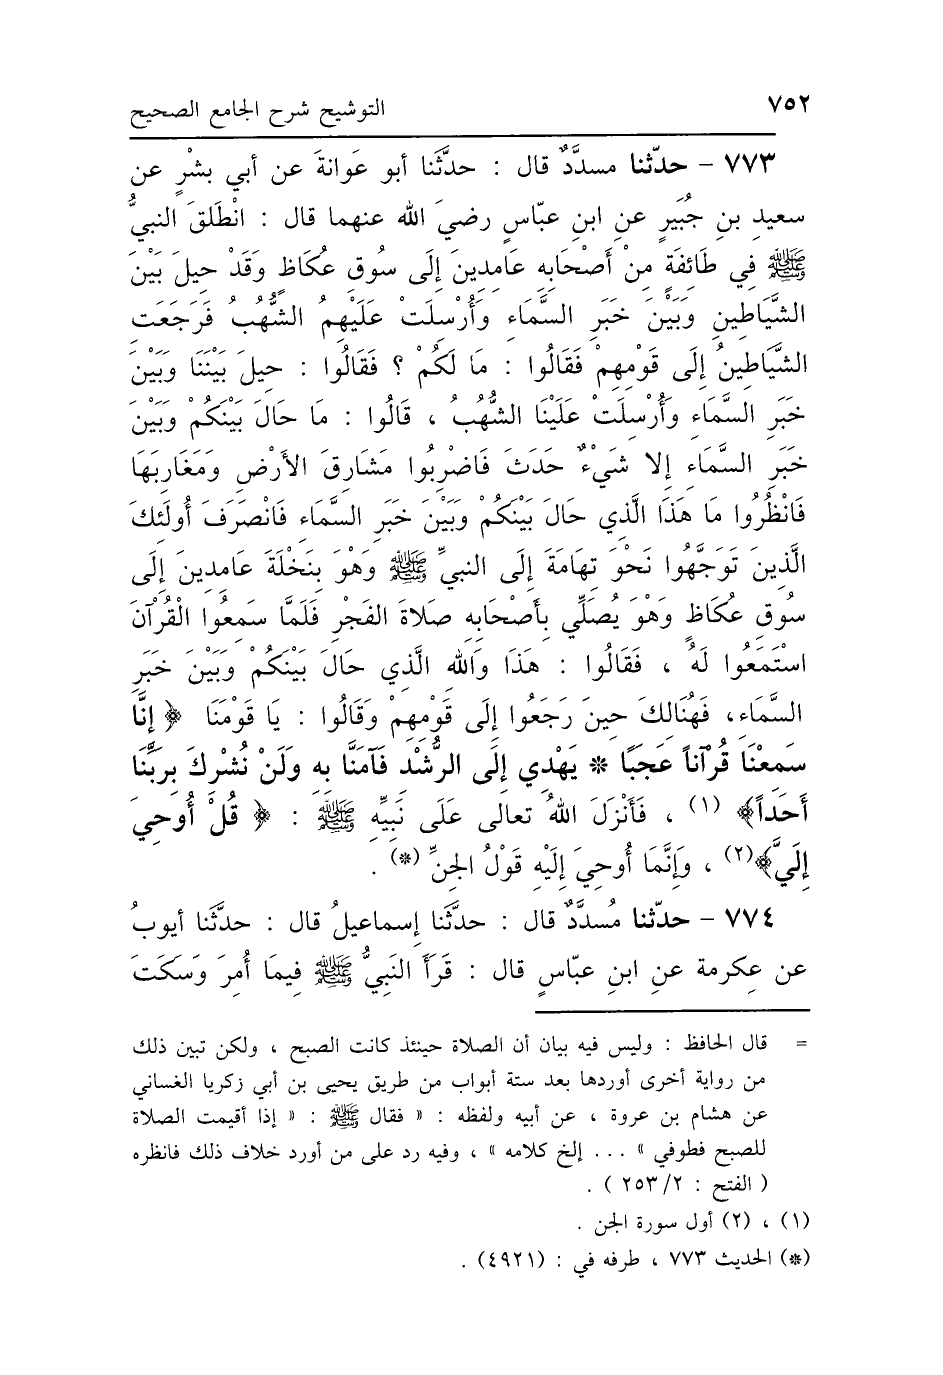 ٧٥٢
التوشيح شرح الجامع الصحيح
٧٧٣ – حدّثنا مسدَّدٌ قال : حدَّثَنا أبو عَوانةَ عن أبي بشْرٍ عن
سعيدِ بنِ جُبَيرٍ عنِ ابنِ عبّاسٍ رضيَ الله عنهما قال : انْطَلقَ النبيُّ
ﷺ فِي طَائِفَةٍ مِنْ أَصْحَابِهِ عَامِدِينَ إِلَى سُوقِ عُكَاظٍ وَقَدْ حِيلَ بَيْنَ
الشَّيَاطِينِ وَبَيْنَ خَبَرِ السَّمَاءِ وَأُرْسِلَتْ عَلَيْهِمُ الشُّهُبُ فَرَجَعَتِ
الشَّيَاطِينُ إِلَى قَوْمِهِمْ فَقَالُوا : مَا لَكُمْ ؟ فَقَالُوا : حِيلَ بَيْنَنَا وَبَيْنَ
خَبَرِ السَّمَاءِ وَأُرْسِلَتْ عَلَيْنَا الشُّهُبُ ، قَالُوا : مَا حَالَ بَيْنَكُمْ وَبَيْنَ
خَبَرِ السَّمَاءِ إِلا شَيْءٌ حَدَثَ فَاضْرِبُوا مَشَارِقَ الأَرْضِ وَمَغَارِبَهَا
فَانْظُرُوا مَا هَذَا الَّذِي حَالَ بَيْنَكُمْ وَبَيْنَ خَبَرِ السَّمَاءِ فَانْصَرَفَ أُولَئِكَ
الَّذِينَ تَوَجَّهُوا نَحْوَ تِهَامَةَ إِلَى النبيِّ ﷺ وَهْوَ بِنَخْلَةَ عَامِدِينَ إِلَى
سُوقِ عُكَاظٍ وَهْوَ يُصَلِّي بِأَصْحَابِهِ صَلاةَ الفَجْرِ فَلَمَّا سَمِعُوا الْقُرْآنَ
اسْتَمَعُوا لَهُ ، فَقَالُوا : هَذَا وَالله الَّذِي حَالَ بَيْنَكُمْ وَبَيْنَ خَبَرِ
السَّمَاءِ، فَهُنَالِكَ حِينَ رَجَعُوا إِلَى قَوْمِهِمْ وَقَالُوا : يَا قَوْمَنَا ﴿ إِنَّا
سَمِعْنَا قُرْآناً عَجَبًا * يَهْدِي إِلَى الرُّشْدِ فَآمَنَّا بِهِ وَلَنْ نُشْرِكَ بِرَبِّنَا
أَحَداً﴾ (١) ، فَأَنْزَلَ اللهُ تعالى عَلَى نَبِيِّهِ ﷺ : ﴿ قُلْ أُوحِيَ
إِلَيَّ﴾(٢) ، وَإِنَّمَا أُوحِيَ إِلَيْهِ قَوْلُ الجِنِّ (*) .
٧٧٤ – حدّثنا مُسدَّدٌ قال : حدَّثَنا إسماعيلُ قال : حدَّثَنا أيوبُ
عن عِكرمة عنِ ابنِ عبّاسٍ قال : قَرَأَ النَبيُّ ﷺ فِيمَا أُمِرَ وَسَكَتَ
= قال الحافظ : وليس فيه بيان أن الصلاة حينئذ كانت الصبح ، ولكن تبين ذلك
من رواية أخرى أوردها بعد ستة أبواب من طريق يحيى بن أبي زكريا الغساني
عن هشام بن عروة ، عن أبيه ولفظه : « فقال ﷺ : « إذا أقيمت الصلاة
للصبح فطوفي » ... إلخ كلامه » ، وفيه رد على من أورد خلاف ذلك فانظره
( الفتح : ٢٥٣/٢ ) .
(١) ، (٢) أول سورة الجن .
(*) الحديث ٧٧٣ ، طرفه في : (٤٩٢١) .